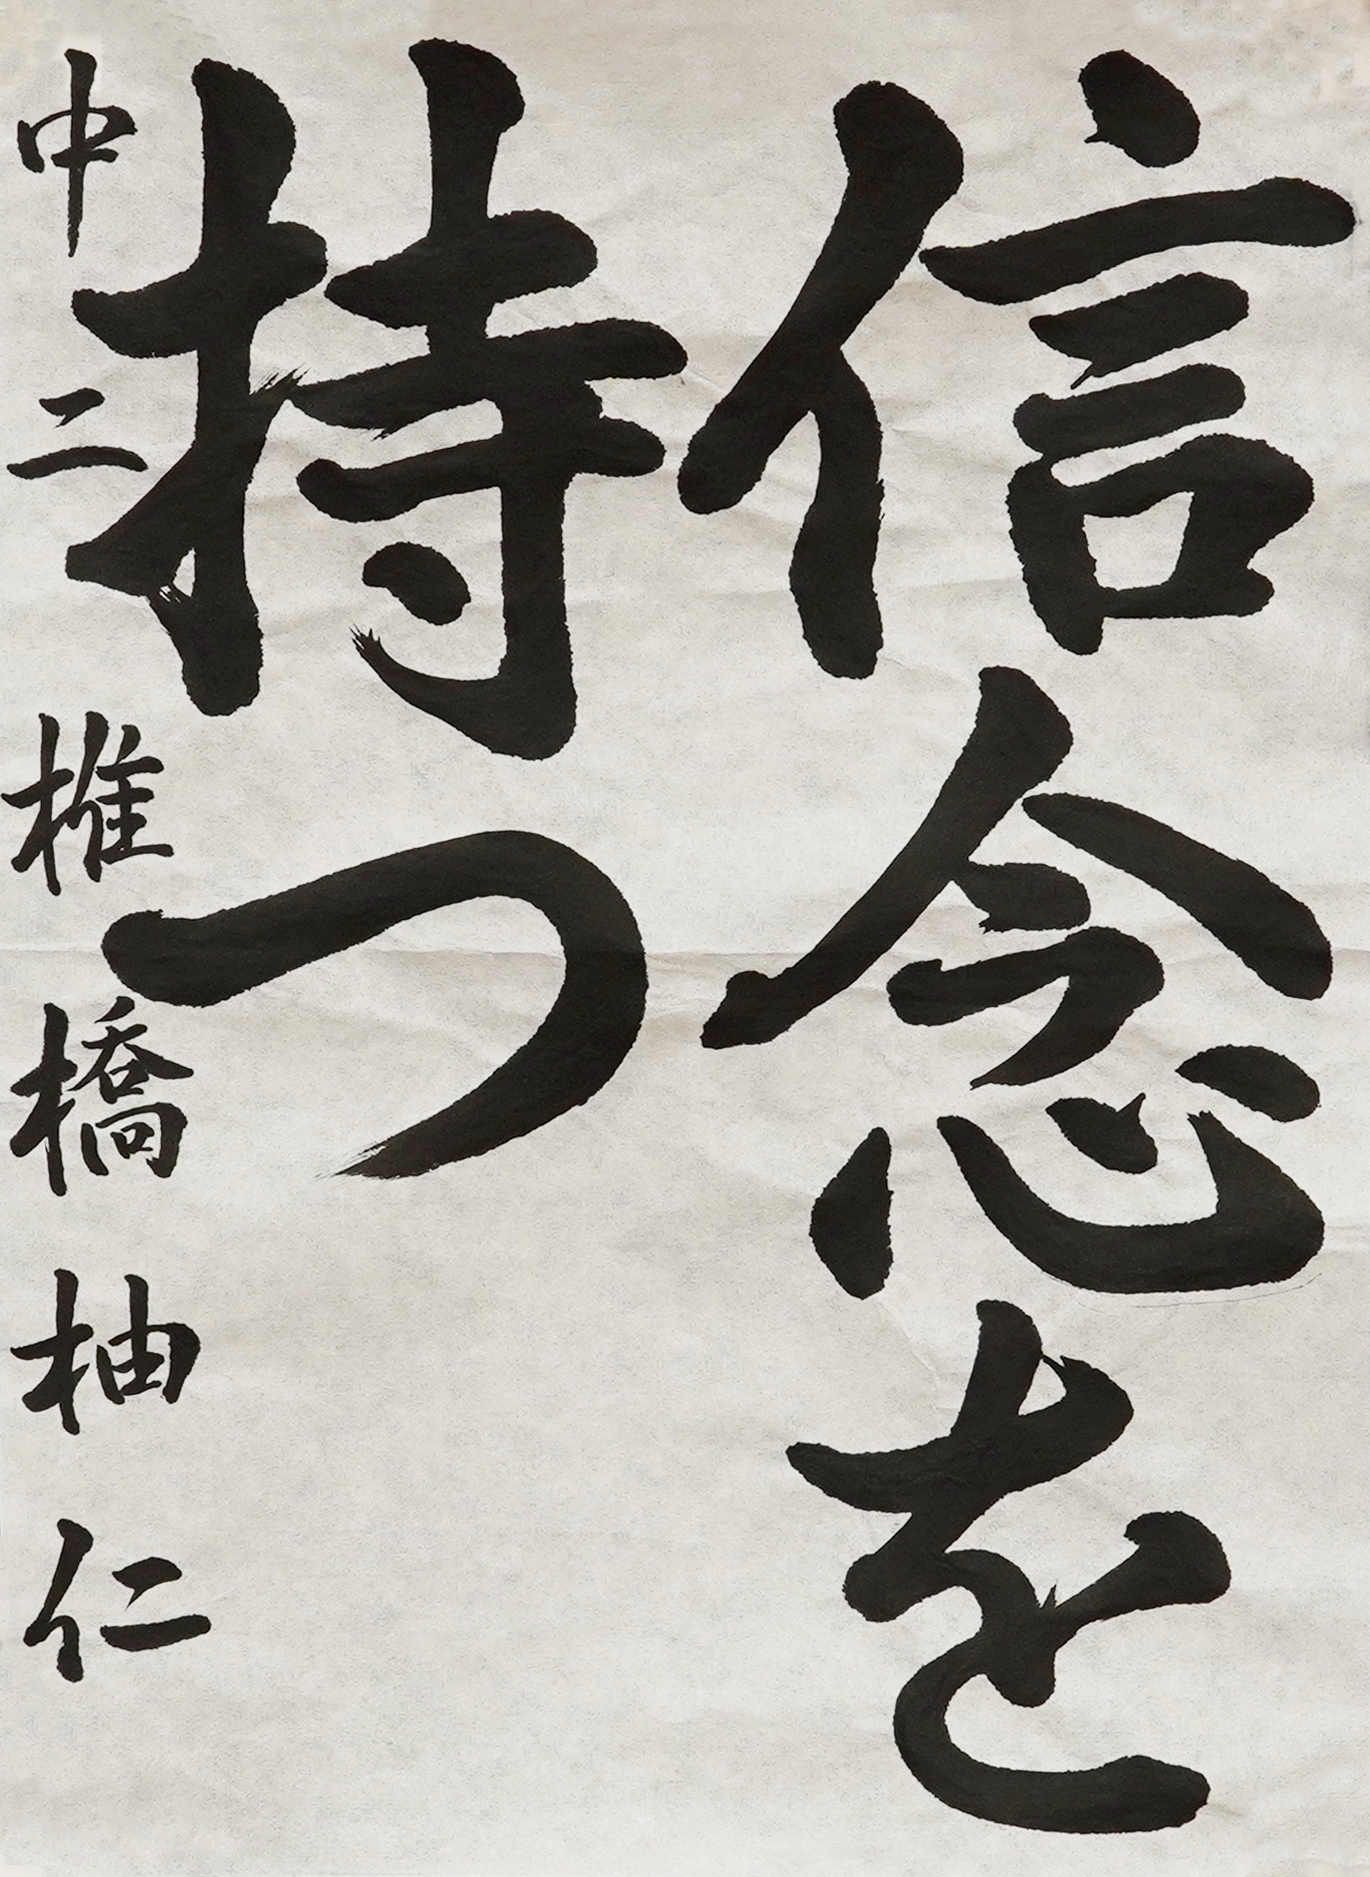 信念を
持つ
中二 椎橋柚仁